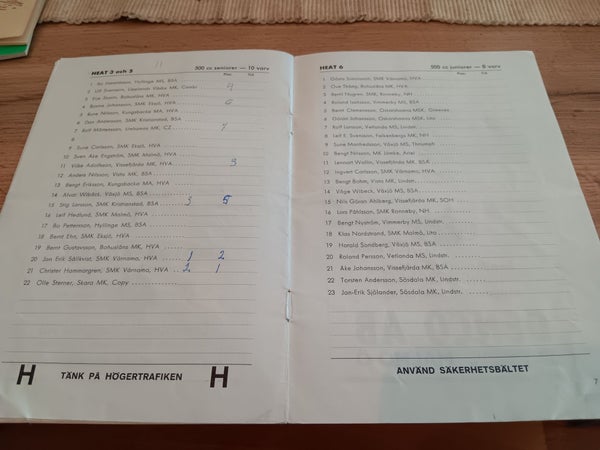 11
HEAT 3 och 5 500 cc seniorer — 10 varv
Plac. Tid
1 Bo Haraldsson, Hyllinge MS, BSA
2 Ulf Svensson, Lisselunds Västkv MK, 4
3 Yve Stamn, Bohusläns MK, HVA
4 Bonne Johansson, SMK Eksjö, HVA 6
5 Rune Nilsson, Kungsbacka MA, HVA
6 Dan Andersson, SMK Kristianstad, BSA
7 Rolf Mårtensson, Uletuena MK, CZ 7
8
9 Sune Carlsson, SMK Eksjö, HVA
10 Sven Åke Engström, SMK Malmö, HVA
11 Vilke Axelsson, Vissefjärda MK, HVA 3
12 Anders Nilsson, Vista MK, BSA
13 Bengt Eriksson, Kungsbacka MA, HVA
14 Alvar Wideås, Växjö MS, BSA
15 Stig Larsson, SMK Kristianstad, BSA 3 5
16 Leif Hedlund, SMK Malmö, HVA
17 Bo Pettersson, Hyllinge MS, BSA
18 Bernt Ehn, SMK Eksjö, HVA
19 Bernt Gustavsson, Bohusläns MK, HVA
20 Jan Erik Sällkvist, SMK Värnamo, HVA 1 2
21 Christer Hammargren, SMK Värnamo, HVA 2 1
22 Olle Sterner, Skara MK, Copy
H TÄNK PÅ HÖGERTRAFIKEN H
HEAT 6 500 cc juniorer — 8 varv
Plac. Tid
1 Gösta Svensson, SMK Värnamo, HVA
2 Ove Thörg, Bohusläns MK, HVA
3 Bernt Nygren, SMK Ronneby, NH
4 Roland Isaksson, Vimmerby MS, BSA
5 Bernt Carlsson, Oskarshamns MSK,
6 Göran Johansson, Oskarshamns MSK, Lito
7 Rolf Larsson, Vetlanda MS, Lindstr.
8 Leif E. Svensson, Falkenbergs MK, NH
9 Sune Manfredsson, Växjö MS, Triumph
10 Bengt Nilsson, MK Limeko, Ariel
11 Lennart Wallin, Vissefjärda MK, BSA
12 Ingvart Carlsson, SMK Värnamo, HVA
13 Bengt Bohm, Vista MK, Lindstr.
14 Våge Wibeck, Växjö MS, BSA
15 Nils Göran Ahlberg, Vissefjärda MK, SOH
16 Lars Påhlsson, SMK Ronneby, NH
17 Bengt Nyström, Vimmerby MS, Lindstr.
18 Klas Nordstrand, SMK Malmö, Lito
19 Harald Sandberg, Växjö MS, BSA
20 Roland Persson, Vetlanda MS, Lindstr.
21 Åke Johansson, Vissefjärda MK, BSA
22 Torsten Andersson, Sösdala MK, Lindstr.
23 Jan-Erik Sjölander, Sösdala MK, Lindstr.
ANVÄND SÄKERHETSBÄLTET
7